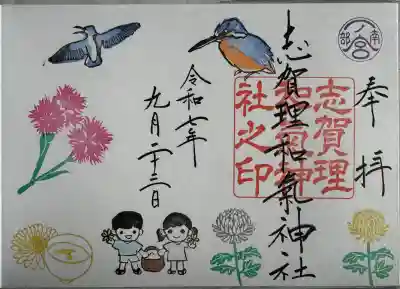 奉拝
南部
一ノ宮
志賀理和氣神社
志賀理
和氣神
社之印
令和七年
九月二十三日